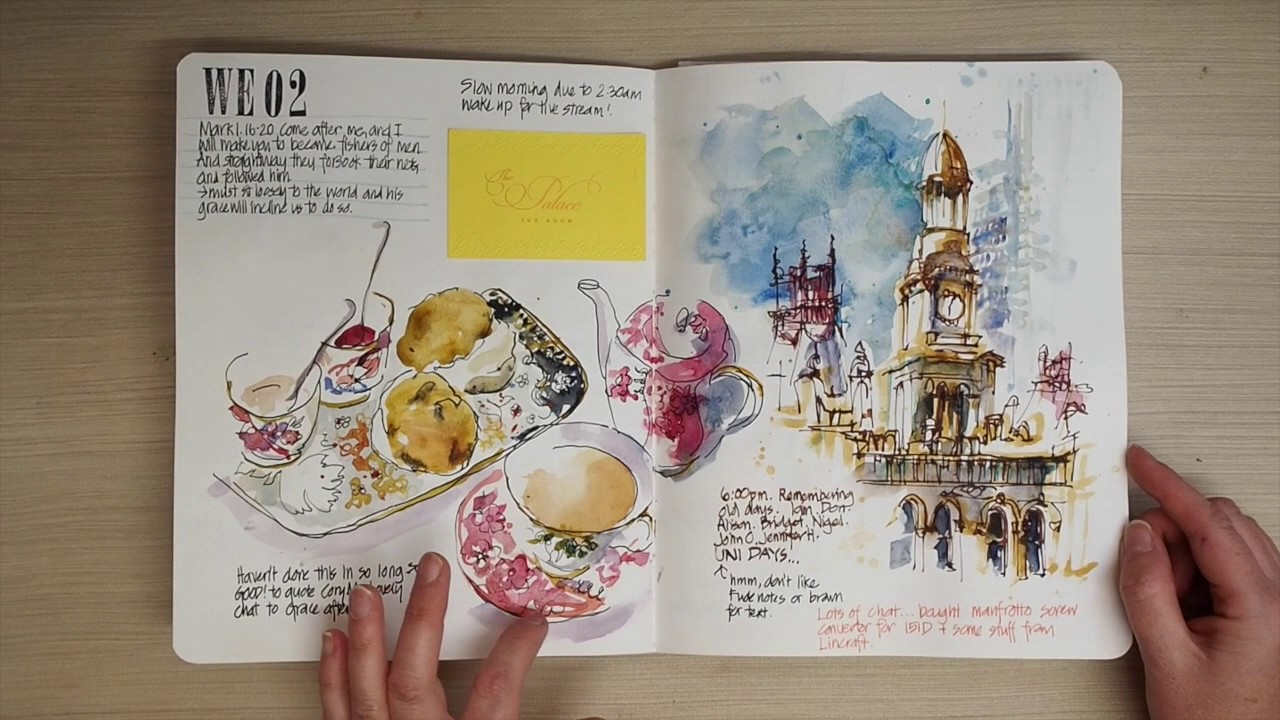 WE 02
Mark 1. 16-20, come after me, and I
will make you to become fishers of men
And straightway they forsook their nets,
and followed him
→ must sit loosely to the world and his
grace will incline us to do so.
Slow morning due to 2:30am
wake up for live stream!
The
Palace
TEA ROOM
Haven't done this in so long
GOOD! to quote Cory
chat to Grace after
6:00pm. Remembering
old days. Iain, Don.
Alison. Bridget, Nigel.
John O, Jennifer H.
UNI DAYS...
hmm, don't like
Fude notes or brown
for text.
Lots of chat... bought manfrotto screw
converter for 151D & some stuff from
Lincraft.